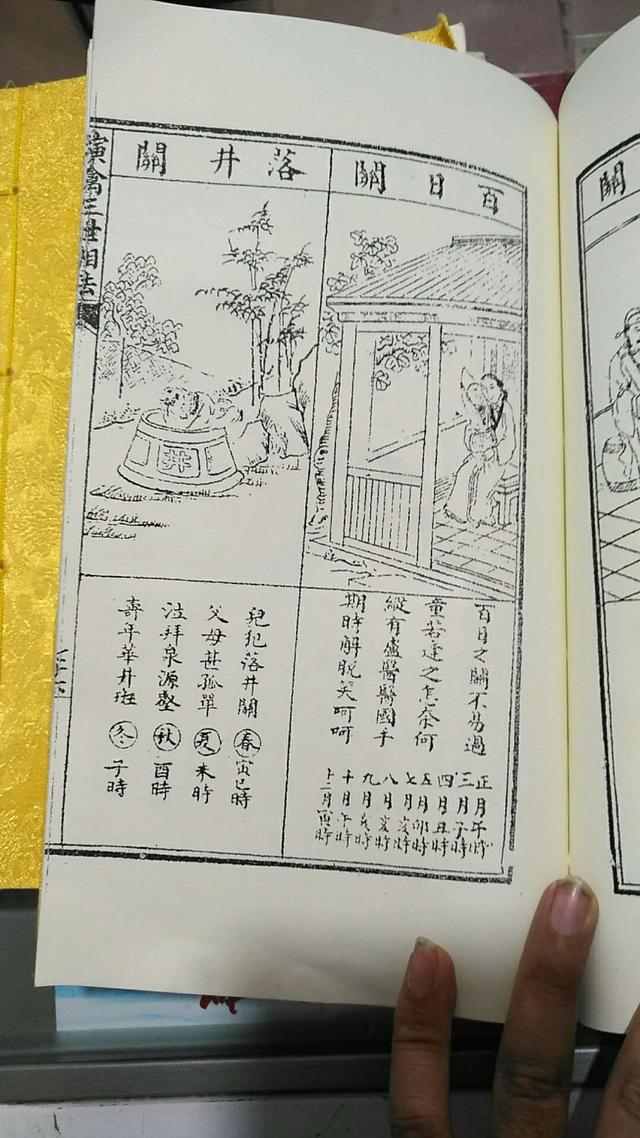 百日關
百日之關不易過
童若逢之怎奈何
縱有盧醫醫國手
期時解脫笑呵呵
正月午時
三月子時
四月丑時
五月卯時
七月亥時
八月亥時
九月亥時
十月午時
十二月寅時
落井關
井
兒犯落井關
父母甚孤單
泣拜泉源
壽年華井
春 寅巳時
夏 未時
秋 酉時
冬 子時
演禽三世相法
關